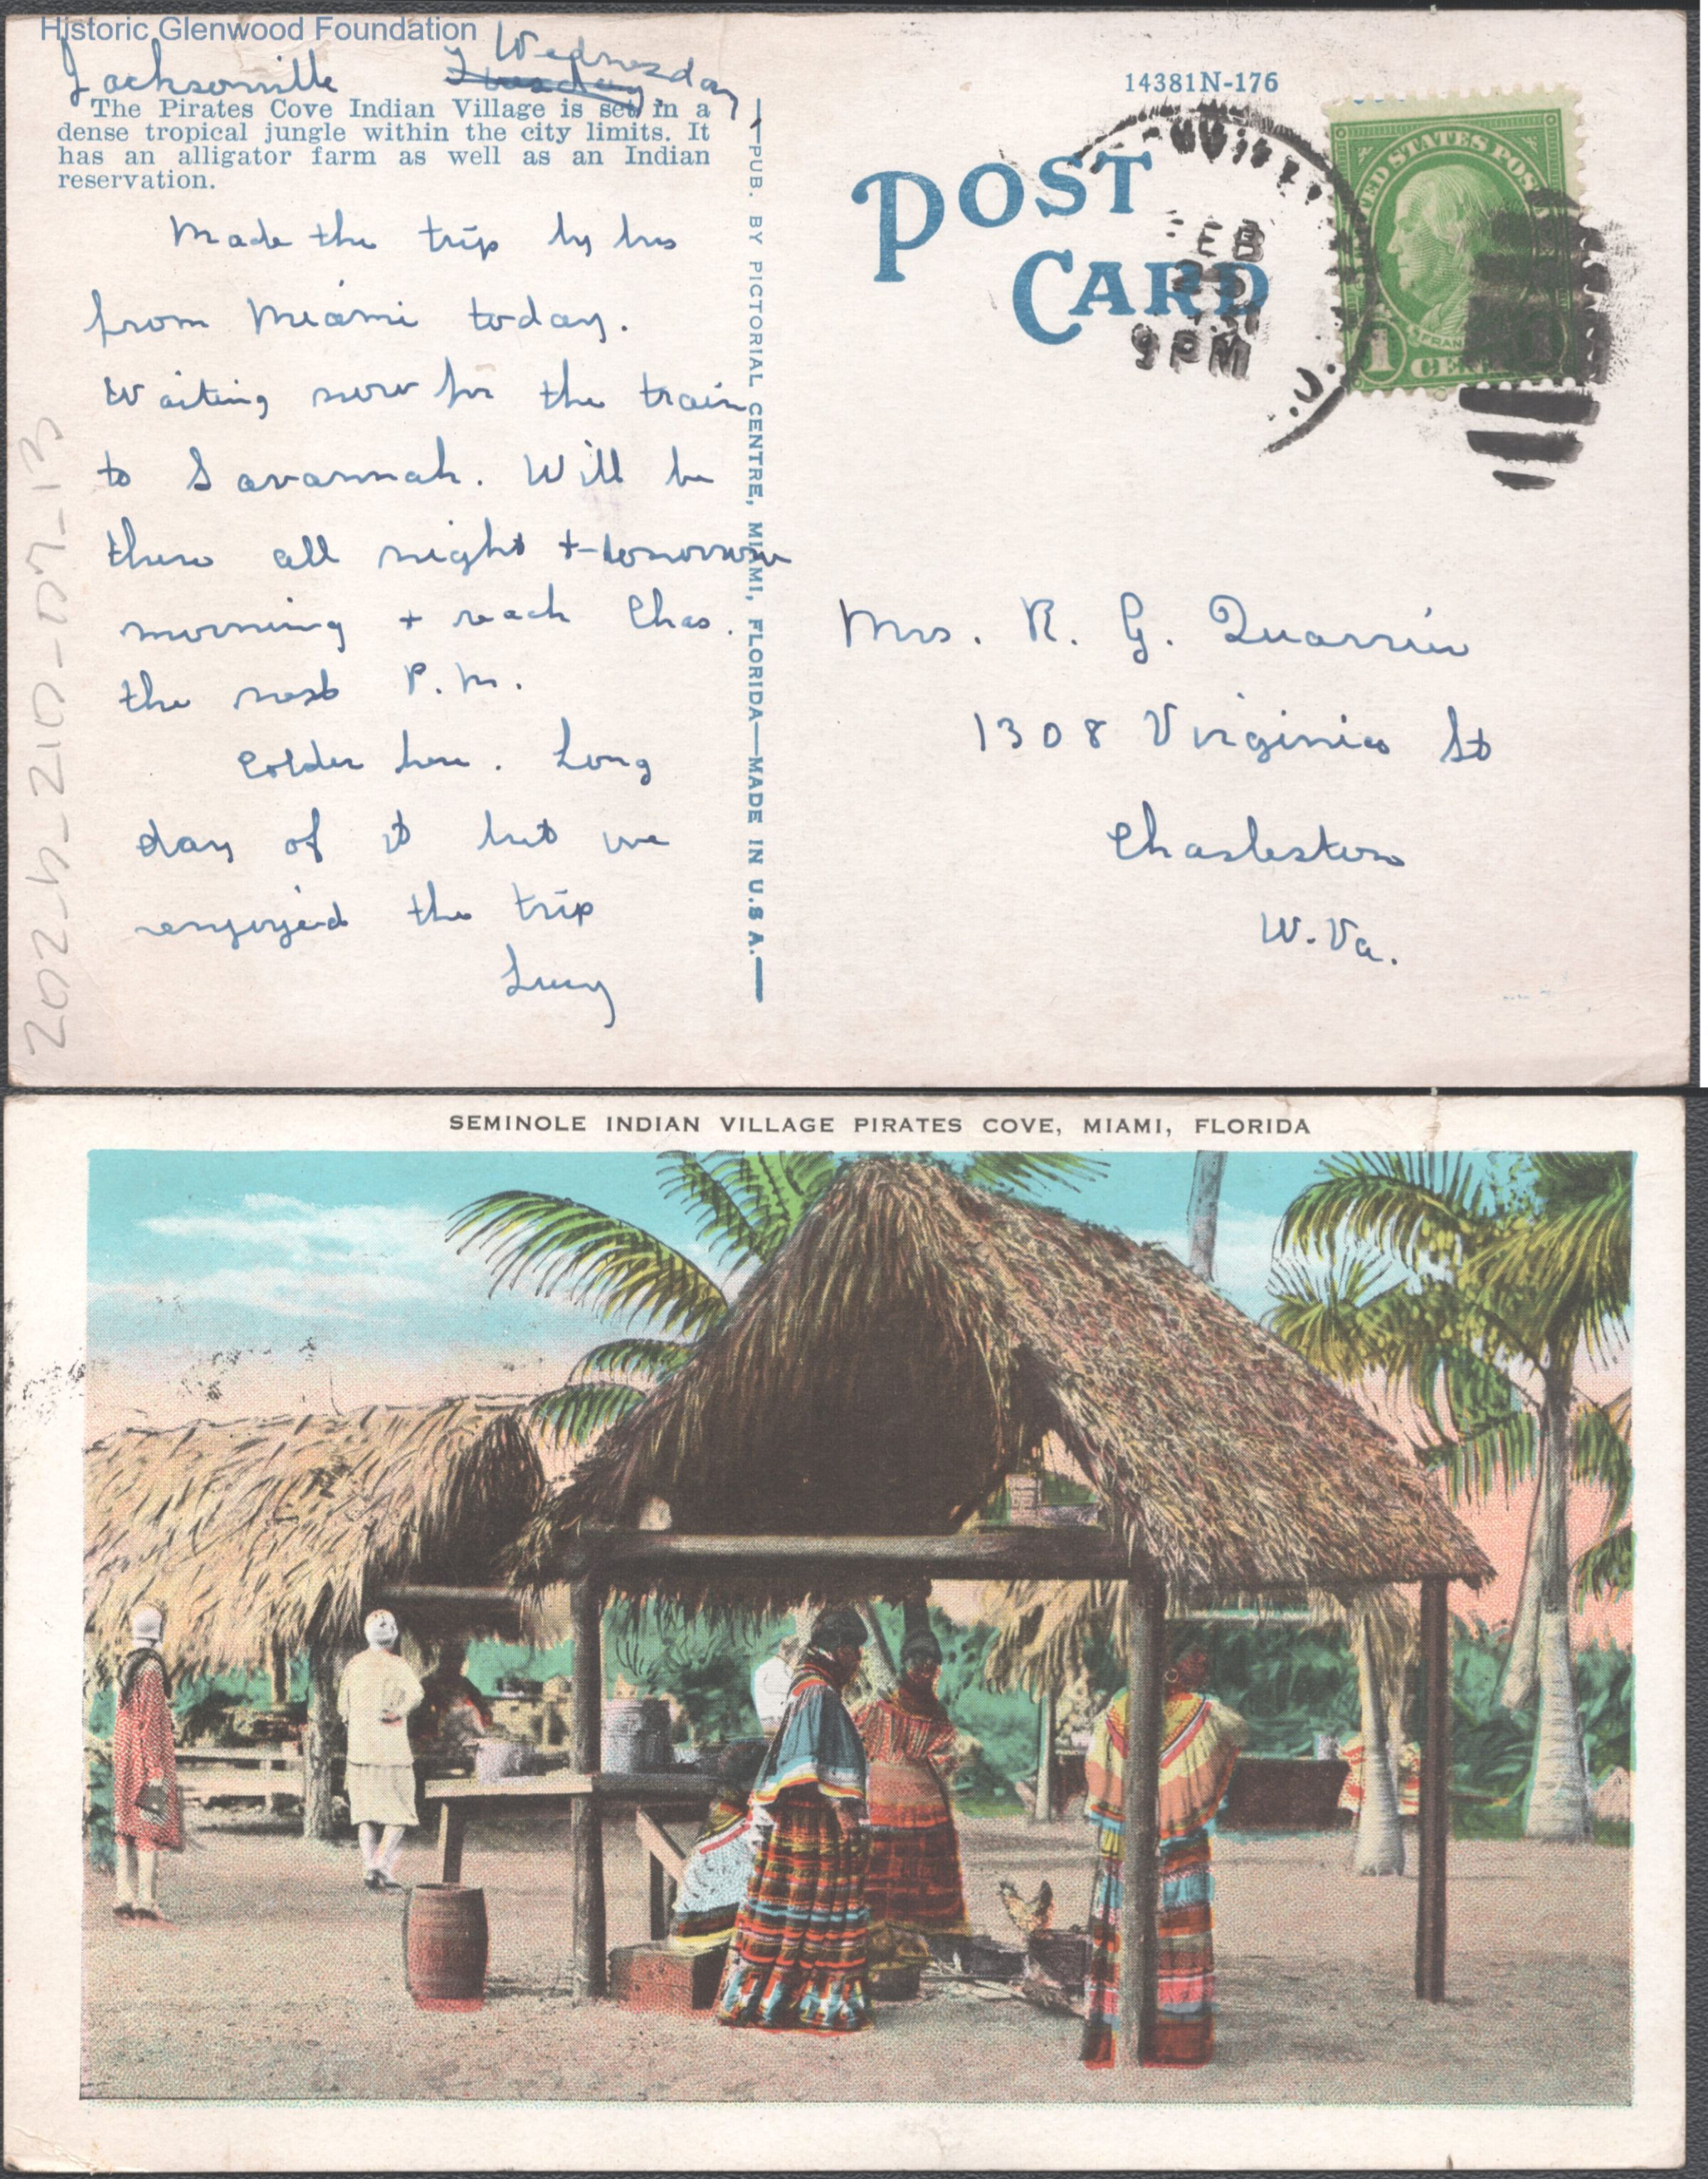 Historic Glenwood Foundation
Jacksonville Tuesday Wednesday
The Pirates Cove Indian Village is set in a
dense tropical jungle within the city limits. It
has an alligator farm as well as an Indian
reservation.
Made the trip by bus
from Miami today.
Waiting now for the train
to Savannah. Will be
there all night + tomorrow
morning + reach Chas.
the next P.M.
Colder here. Long
day of it but we
enjoyed the trip
Lucy
2021-4-210-07-13
PUB. BY PICTORIAL CENTRE, MIAMI, FLORIDA—MADE IN U.S A.
14381N-176
POST
CARD
FEB
25
9 PM
UNITED STATES POS
FRAN
1 CEN
Mrs. R. G. Quarrier
1308 Virginia St
Charleston
W. Va.
SEMINOLE INDIAN VILLAGE PIRATES COVE, MIAMI, FLORIDA